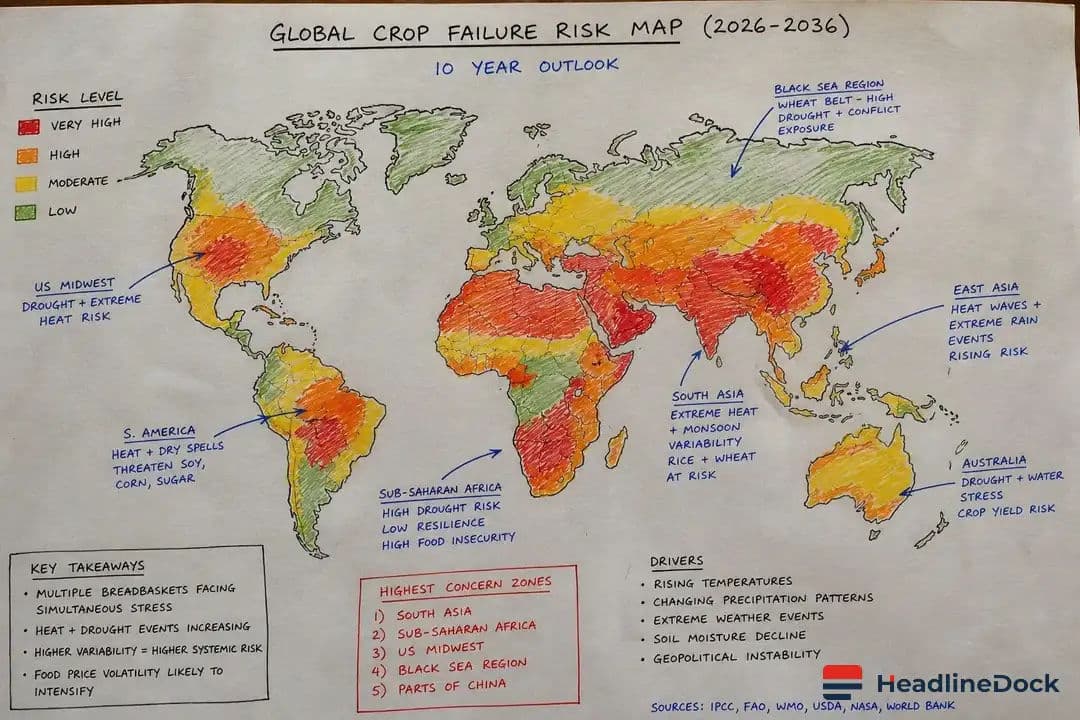 GLOBAL CROP FAILURE RISK MAP (2026-2036)
10 YEAR OUTLOOK
RISK LEVEL
VERY HIGH
HIGH
MODERATE
LOW
BLACK SEA REGION
WHEAT BELT - HIGH
DROUGHT + CONFLICT
EXPOSURE
US MIDWEST
DROUGHT + EXTREME
HEAT RISK
EAST ASIA
HEAT WAVES +
EXTREME RAIN
EVENTS
RISING RISK
S. AMERICA
HEAT + DRY SPELLS
THREATEN SOY,
CORN, SUGAR
SUB-SAHARAN AFRICA
HIGH DROUGHT RISK
LOW RESILIENCE
HIGH FOOD INSECURITY
SOUTH ASIA
EXTREME HEAT
+ MONSOON
VARIABILITY
RICE + WHEAT
AT RISK
AUSTRALIA
DROUGHT + WATER
STRESS
CROP YIELD RISK
KEY TAKEAWAYS
• MULTIPLE BREADBASKETS FACING
SIMULTANEOUS STRESS
• HEAT + DROUGHT EVENTS INCREASING
• HIGHER VARIABILITY = HIGHER SYSTEMIC RISK
• FOOD PRICE VOLATILITY LIKELY TO
INTENSIFY
HIGHEST CONCERN ZONES
1) SOUTH ASIA
2) SUB-SAHARAN AFRICA
3) US MIDWEST
4) BLACK SEA REGION
5) PARTS OF CHINA
DRIVERS
• RISING TEMPERATURES
• CHANGING PRECIPITATION PATTERNS
• EXTREME WEATHER EVENTS
• SOIL MOISTURE DECLINE
• GEOPOLITICAL INSTABILITY
HeadlineDock
SOURCES: IPCC, FAO, WMO, USDA, NASA, WORLD BANK